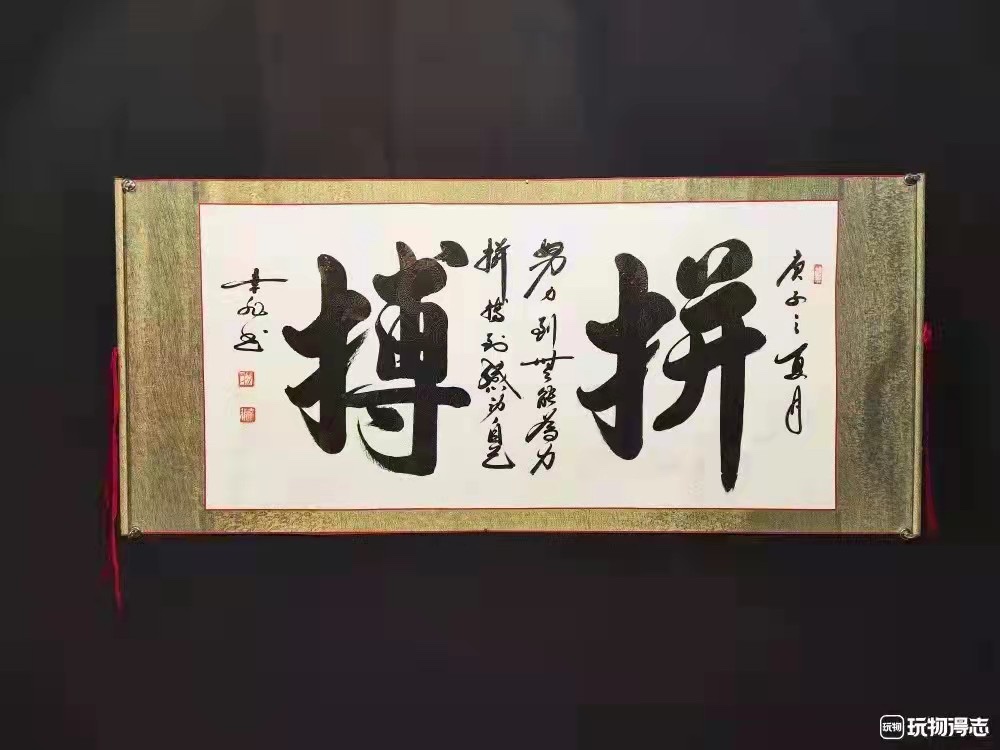 庚子之夏月
拼
努力到無能為力
拼搏到感动自己
搏
玩物
玩物得志